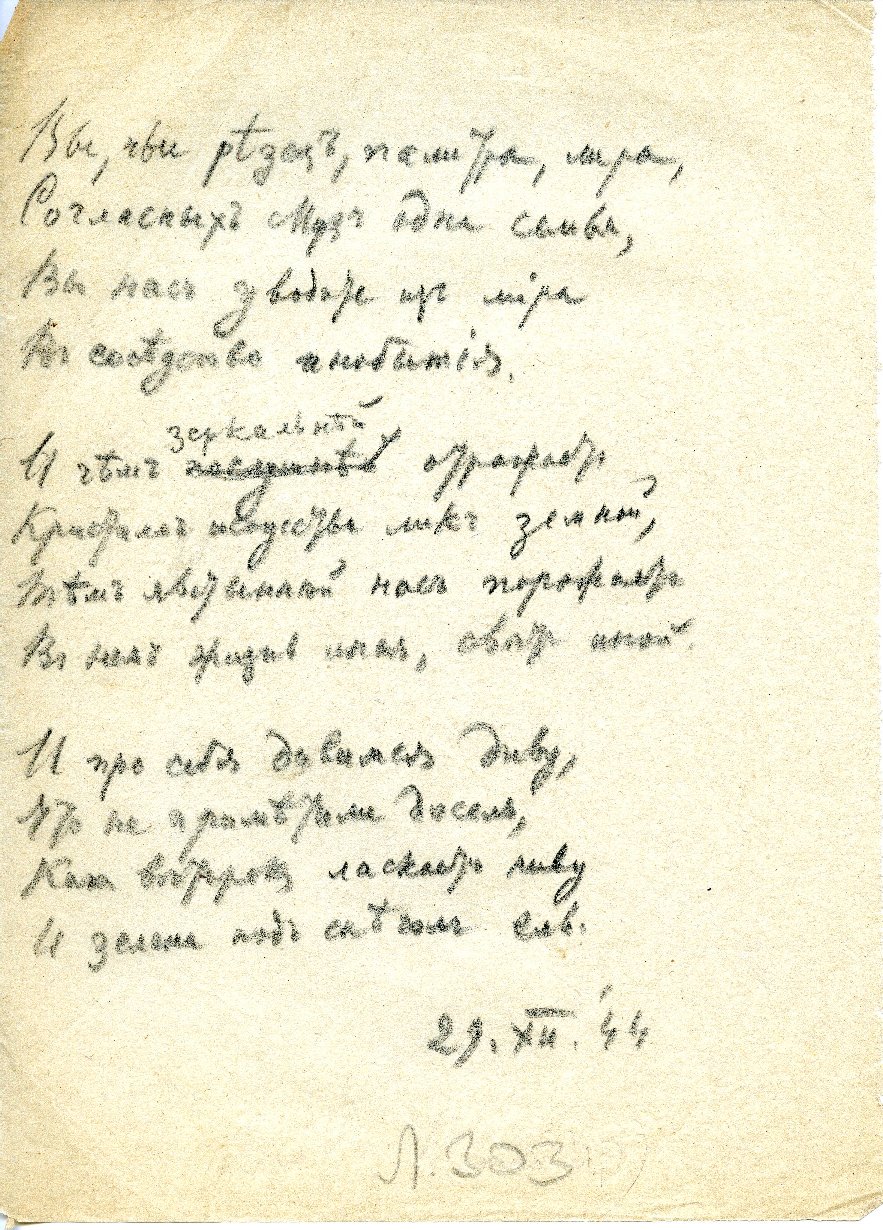 Вы, чьи рѣзецъ, палитра, лира,
Согласныхъ Музъ одна семья,
Вы насъ уводите изъ міра
Въ сосѣдство инобытія.
зеркальнѣй
И чѣмъ отражаетъ
Кристалъ искусства ликъ земной,
Тѣмъ явственнѣй насъ поражаетъ
Въ немъ жизнь иная, свѣтъ иной.
И про себя дивимся диву,
Что не примѣтили досель,
Какъ вѣтерокъ ласкаетъ ниву
И зелена подъ снѣгомъ ель.
29. XII. '44
Л. 303